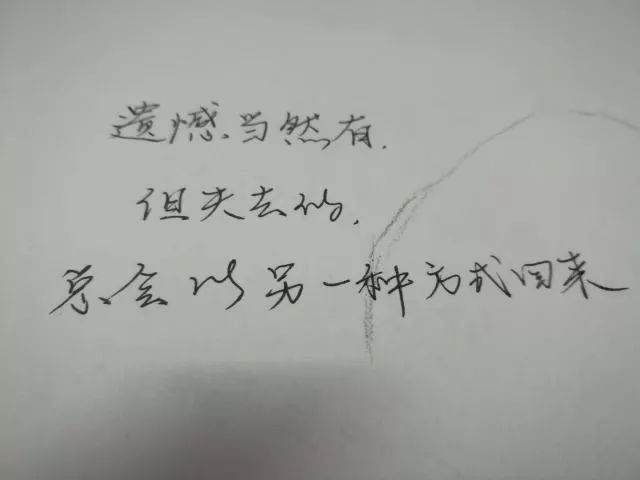 遗憾当然有.
但失去的,
总会以另一种方式回来